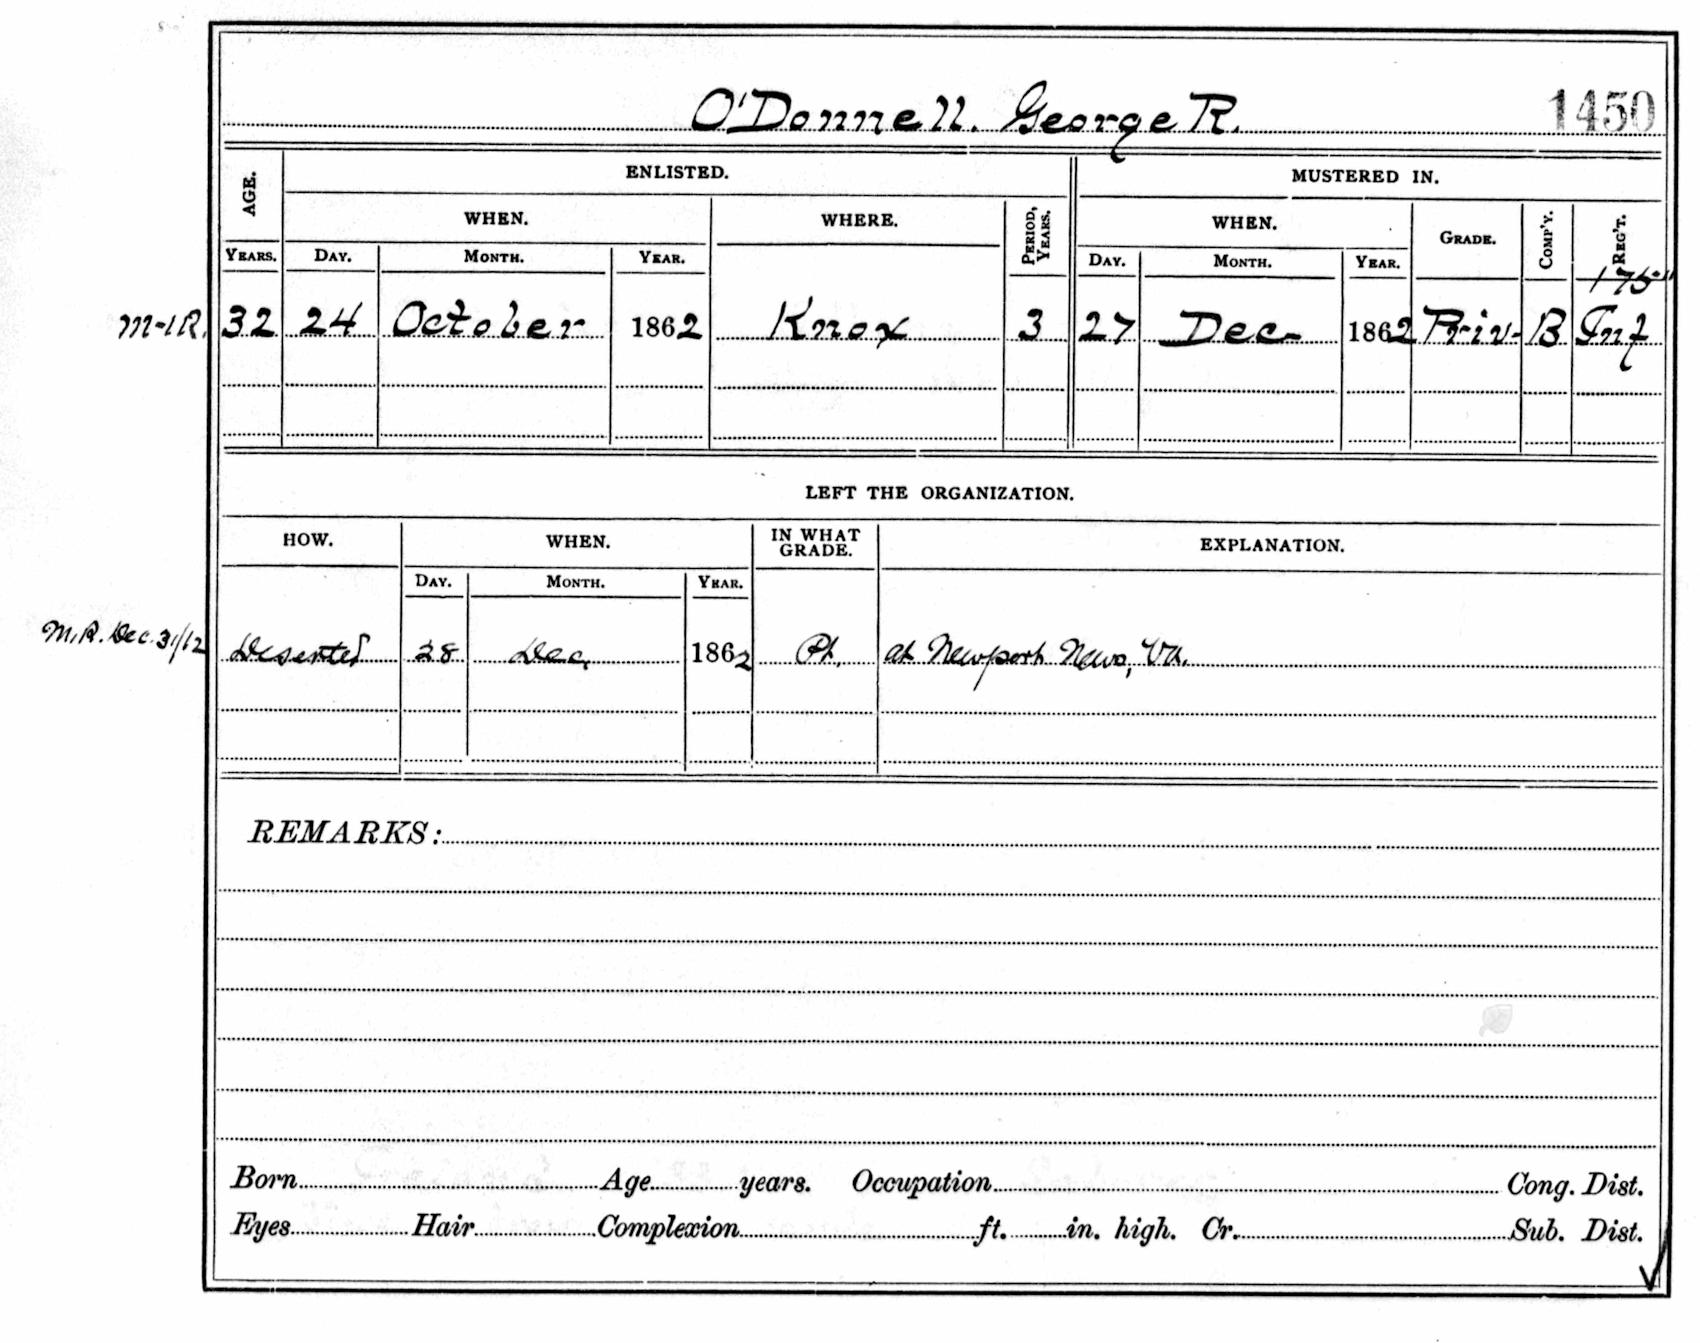 O'Donnell. George R. 1450
AGE. ENLISTED. MUSTERED IN.
WHEN. WHERE. PERIOD, YEARS. WHEN. GRADE. COMP'Y. REG'T.
YEARS. DAY. MONTH. YEAR. DAY. MONTH. YEAR.
175"
M-I R. 32 24 October 1862 Knox 3 27 Dec- 1862 Priv- B Inf
LEFT THE ORGANIZATION.
HOW. WHEN. IN WHAT GRADE. EXPLANATION.
DAY. MONTH. YEAR.
M.R. Dec. 31/62 Deserted 28 Dec. 1862 Pt. at Newport News, Va.
REMARKS:
Born Age years. Occupation Cong. Dist.
Eyes Hair Complexion ft. in. high. Cr. Sub. Dist.